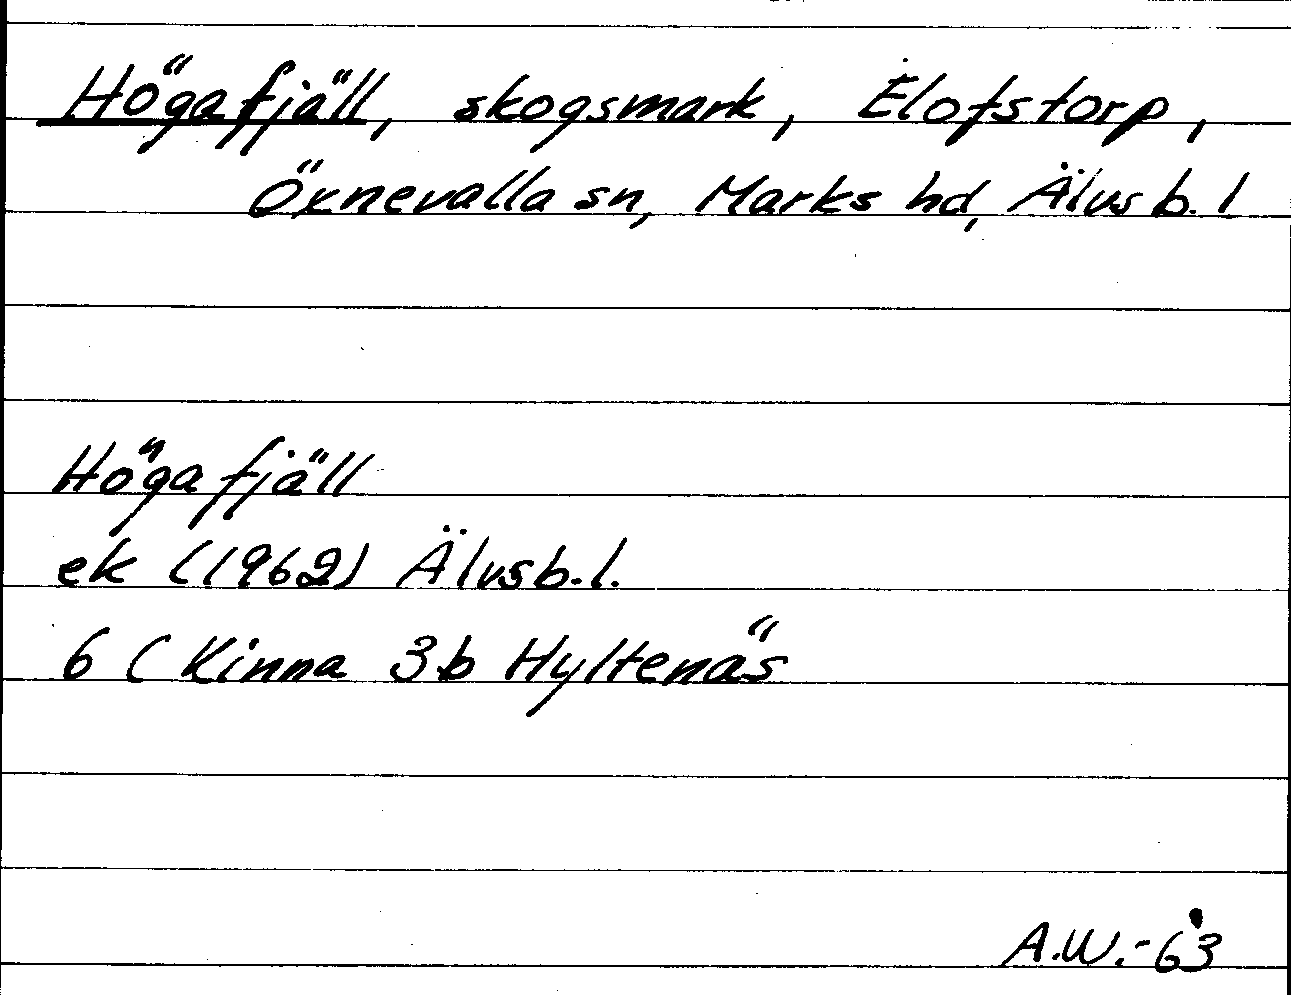 Högafjäll, skogsmark, Elofstorp,
Öxnevalla sn, Marks hd, Älvsb. l
Högafjäll
ek (1962) Älvsb. l.
6 ( Kinna 3b Hyltenäs
A.W.-63